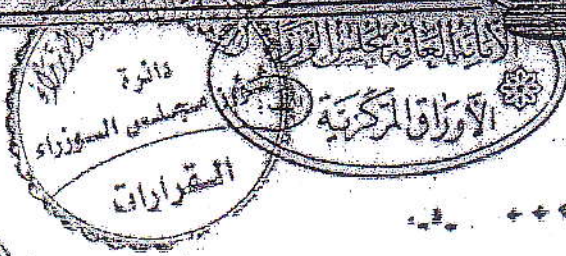 الأمانة العامة لمجلس الوزراء
الأوراق المركزية
دائرة
شؤون مجلس الوزراء
القرارات